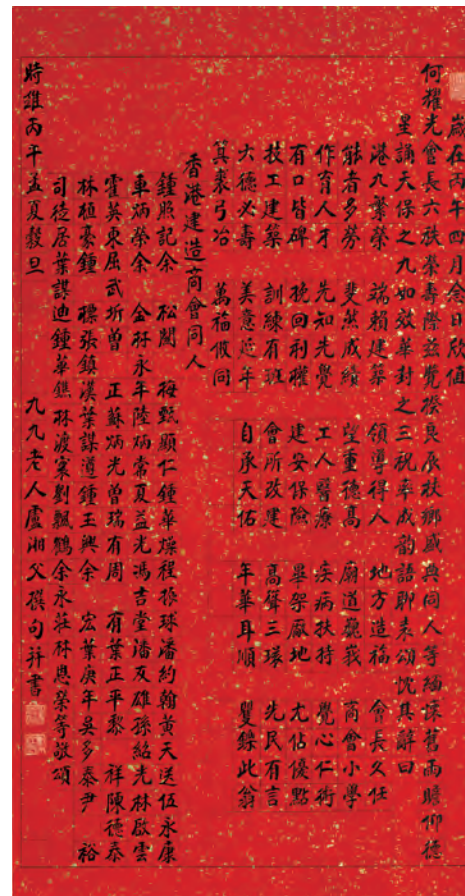 歲在丙午四月念日欣值
何耀光會長六秩榮壽際茲覽揆良辰扶鄉盛典同人等緬懷舊雨瞻仰德
星誦天保之九如效華封之三祝率成韵語聊表頌忱其辭曰
港九繁榮 端賴建築 領導得人 地方造福 會長久任
能者多勞 斐然成績 望重德高 廟道巍峩 商會小學
作育人才 先知先覺 工人醫療 疾病扶持 覺心仁術
有口皆碑 挽回利權 建安保險 畢架廠地 尤佔優點
技工建築 訓練有班 會所改建 高聳三環 先民有言
大德必壽 美意延年 自承天佑 年華耳順 矍鑠此翁
箕裘弓冶 萬福攸同
香港建造商會同人
鍾照記余 松關 梅甄顯仁鍾華燥程振球潘約翰黃天送伍永康
車炳榮余 金林永年陸炳棠夏益光馮吉堂潘友雄孫紹先林啟雲
霍英東屈武圻曾 正蘇炳光曾瑞有周 有葉正平黎 祥陳德泰
林植豪鍾 標張鎮漢葉謀遵鍾玉興余 宏葉庚年吳多泰尹 裕
司徒居葉謀迪鍾華鐫林渡案劉飄鶴余永莊林思榮等敬頌
時維丙午孟夏穀旦 九九老人盧湘父撰句并書